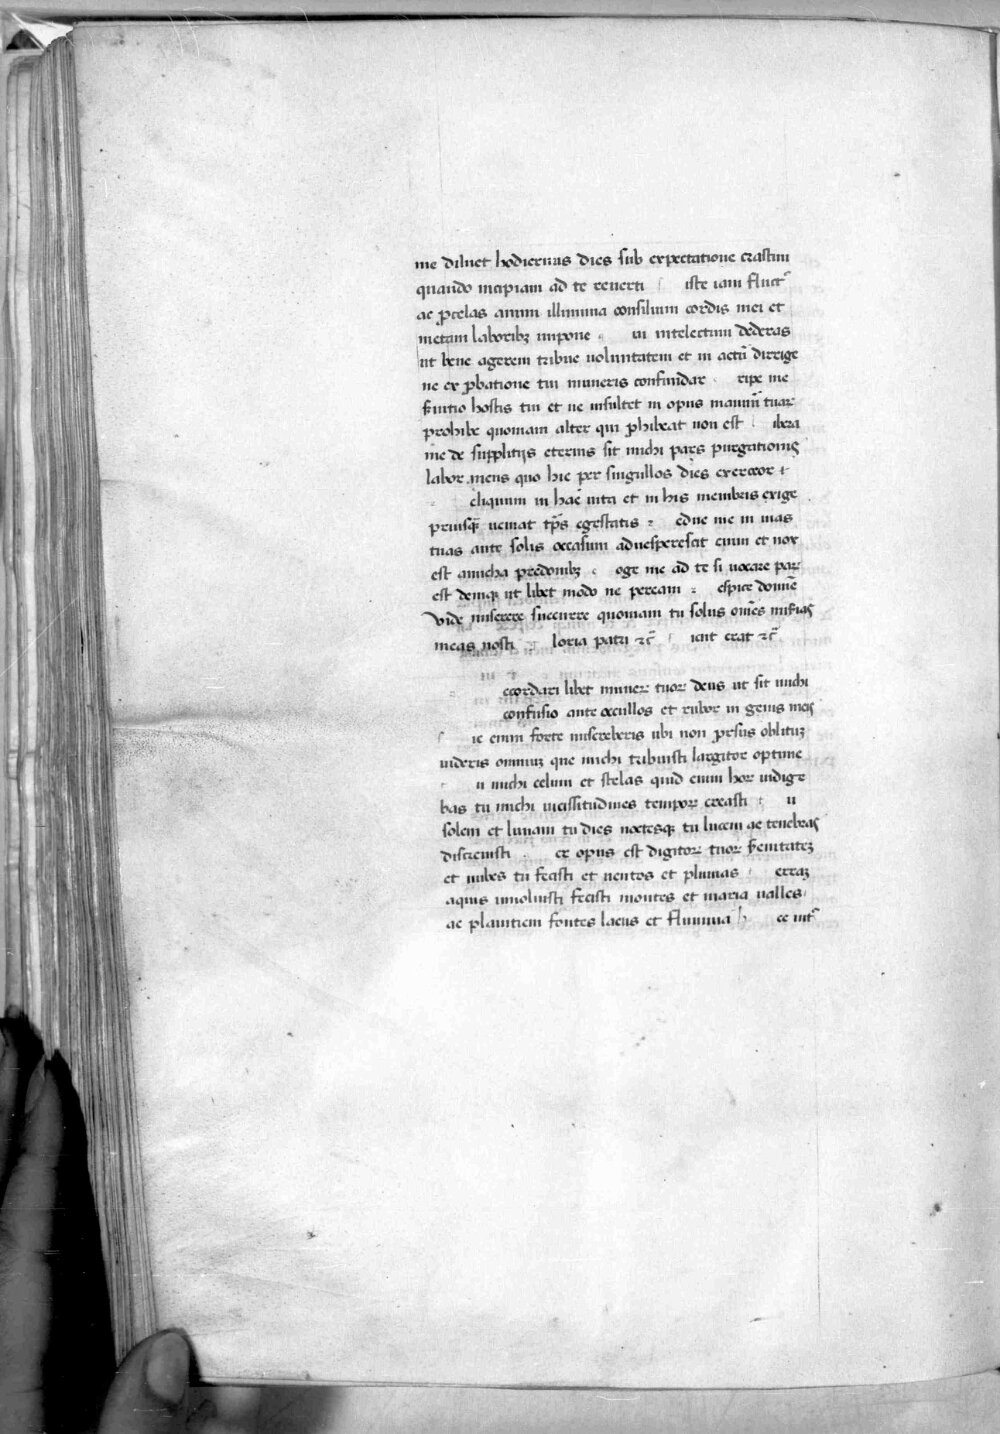 me diluet hodiernus dies sub expectatione crastini
quando incipiam ad te reverti iste iam fluct᷒
ac ꝓcelas animi illumina consilium cordis mei et
metam laboribꝫ impone u intelectum dederas
ut bene agerem tribue uoluntatem et in actū dirrige
ne ex ꝓbatione tui muneris confundar ripe me
seuitio hostis tui et ne insultet in opus manuū tuaꝝ
prohibe quoniam alter qui ꝓhibeat non est ibera
me de supplitijs eternis sit michi pars purgationis
labor meus quo hic per singullos dies exerceor
eliquum in hac uita et in his membris exige
priusꝗ ueniat tꝑs egestatis educ me in uias
tuas ante solis occasum aduesperescit enim et nox
est amicha predonibꝫ oge me ad te si uocare par
est deniqꝫ ut libet modo ne peream espice domine
vide miserere succurre quoniam tu solus omēs miẜias
meas nosti loria patri ⁊c̄ icut erat ⁊c̄
ecordari libet muneꝝ tuoꝝ deus ut sit michi
confusio ante occullos et rubor in genis meis
ic enim forte misereberis ubi non ꝓrsus oblitus
uideris omnium que michi tribuisti largitor optime
u michi celum et stelas quid enim hoꝝ indige
bas tu michi uicissitudines tempoꝝ creasti u
solem et lunam tu dies noctesqꝫ tu lucem ac tenebras
discreuisti ex opus est digitoꝝ tuoꝝ
et nubes tu fecisti et uentos et pluuias erraꝫ
aquis inuoluisti fecisti montes et maria ualles
ac planitiem fontes lacus et flumina ec int᷒